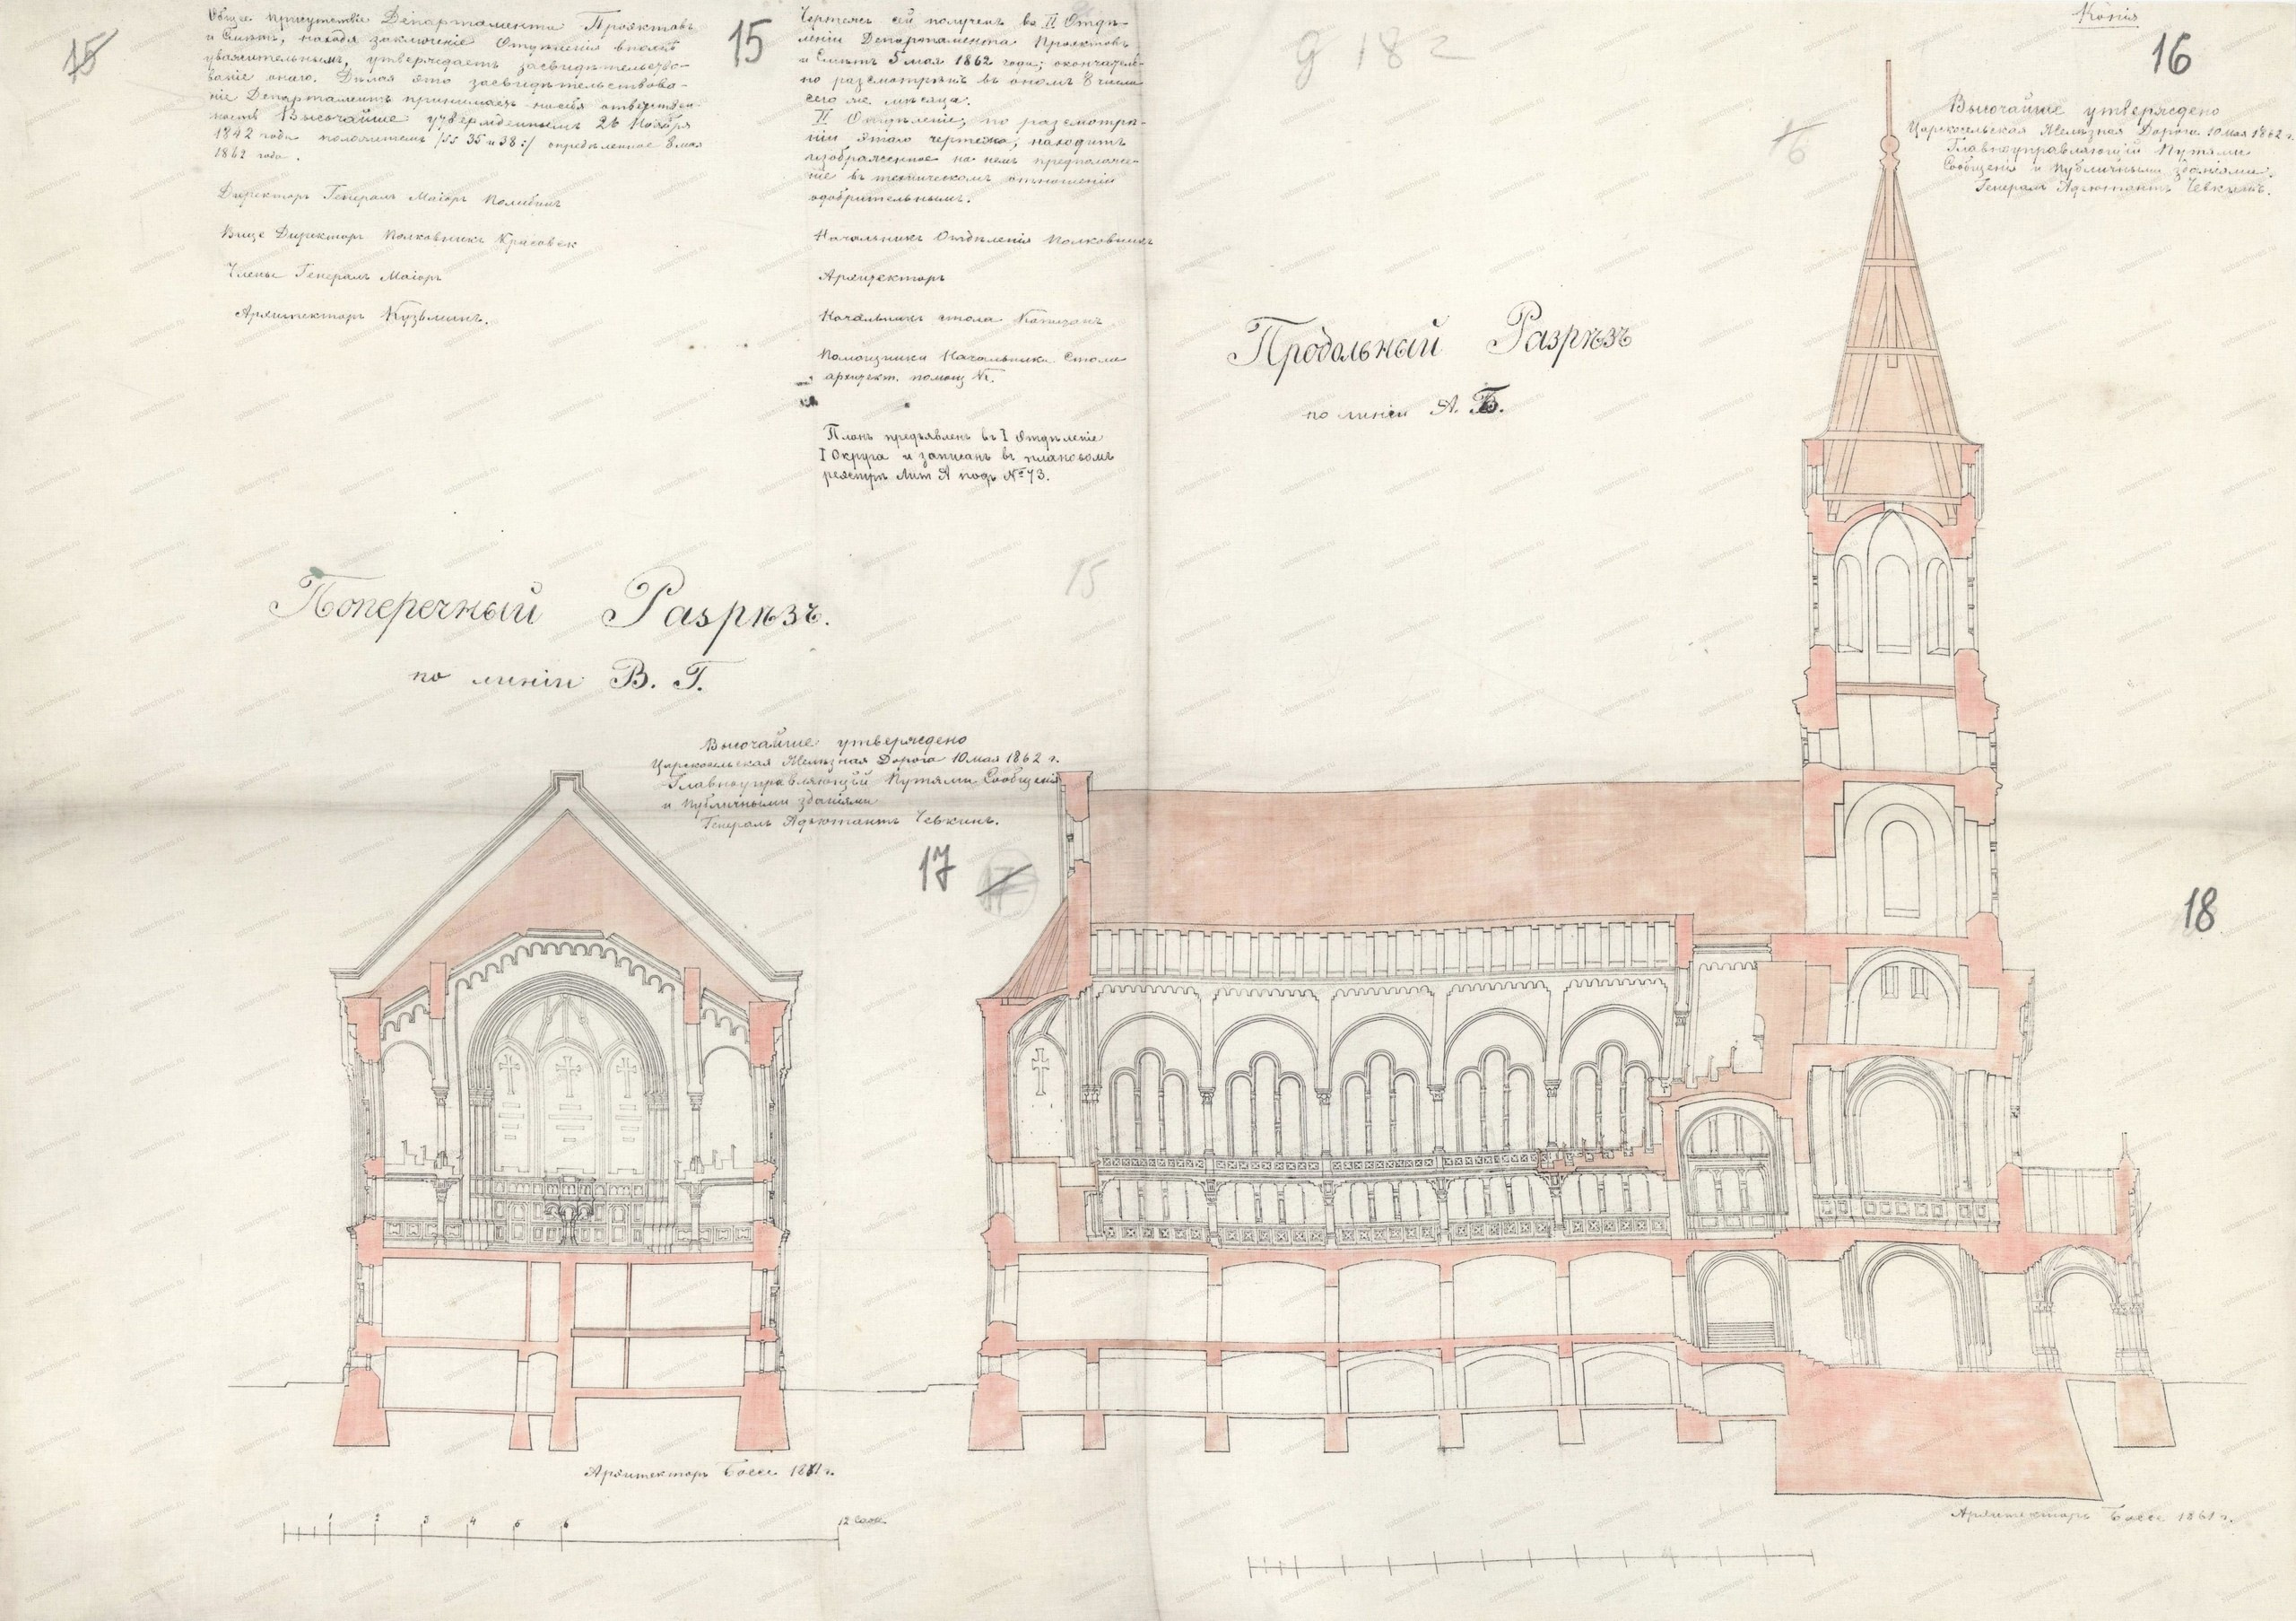 15
Общее присутствіе Департамента Проэктовъ
и Смѣтъ, находя заключеніе Отдѣленія вполнѣ
уважительнымъ, утверждаетъ засвидѣтельство-
ваніе онаго. Дѣлая это засвидѣтельствова-
ніе Департаментъ принимаетъ на себя отвѣтствен-
ность Высочайше утвержденнымъ 26 Ноября
1842 года положеніемъ /§§ 35 и 38:/ опредѣленное 8 мая
1862 года.
Директоръ Генералъ Маіоръ
Вице Директоръ Полковникъ Красовск
Члены Генералъ Маіоръ
Архитекторъ Кузьминъ.
15
Чертежъ сей полученъ въ II Отдѣ-
леніи Департамента Проэктовъ
и Смѣтъ 5 мая 1862 года; окончатель-
но разсмотрѣнъ въ ономъ 8 числа
сего же мѣсяца.
II Отдѣленіе, по разсмотрѣ-
ніи этаго чертежа, находитъ
изображенное на немъ предположе-
ніе въ техническомъ отношеніи
одобрительнымъ.
Начальникъ Отдѣленія Полковникъ
Архитекторъ
Начальникъ стола Капитанъ
Помощники Начальника Стола
архитект. помощ
Планъ предъявленъ въ I Отдѣленіе
I Округа и записанъ въ плановомъ
реестрѣ Лит А подъ № 73.
g 182
Копія
16
16
Высочайше утверждено
Царскосельская Желѣзная Дорога 10 мая 1862 г.
Главноуправляющій Путями
Сообщенія и Публичными зданіями.
Генералъ Адъютантъ Чевкинъ.
Продольный Разрѣзъ
по линіи А. Б.
15
Поперечный Разрѣзъ.
по линіи В. Г.
Высочайше утверждено
Царскосельская Желѣзная Дорога 10 мая 1862 г.
Главноуправляющій Путями Сообщенія
и Публичными зданіями
Генералъ Адъютантъ Чевкинъ.
17
17
18
Архитекторъ Боссе 1861 г.
1 2 3 4 5 6 12 Саж.
Архитекторъ Боссе 1861 г.
spbarchives.ru